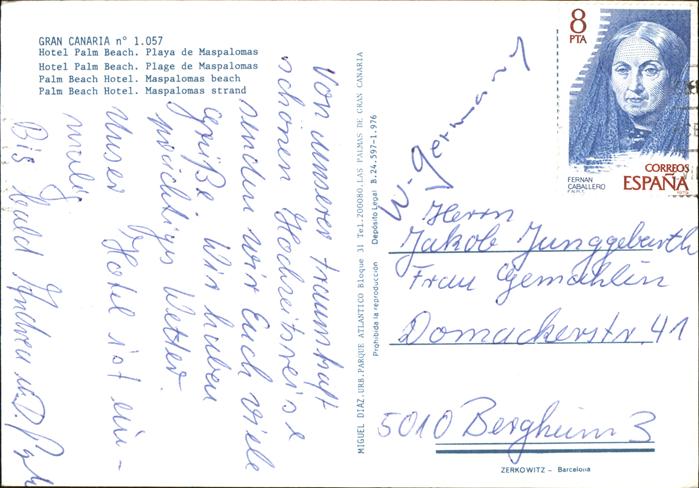 GRAN CANARIA nº 1.057
Hotel Palm Beach. Playa de Maspalomas
Hotel Palm Beach. Plage de Maspalomas
Palm Beach Hotel. Maspalomas beach
Palm Beach Hotel. Maspalomas strand
Von unserer traumhaft
schönen Hochzeitsreise
senden wir Euch viele
Grüße. Wir haben
prächtiges Wetter.
Unser Hotel ist ein-
malig
Bis bald Andrea u.
MIGUEL DIAZ.URB.PARQUE ATLANTICO Bloque 31 Tel.200080.LAS PALMAS DE GRAN CANARIA
Prohibida la reproducción Depósito Legal B.24.597-1.976
8
PTA
FERNAN
CABALLERO
CORREOS
ESPAÑA
W. Germany
Herrn
Jakob Junggeburth
Frau Gemahlin
Domackerstr. 41
5010 Bergheim 3
ZERKOWITZ - Barcelona